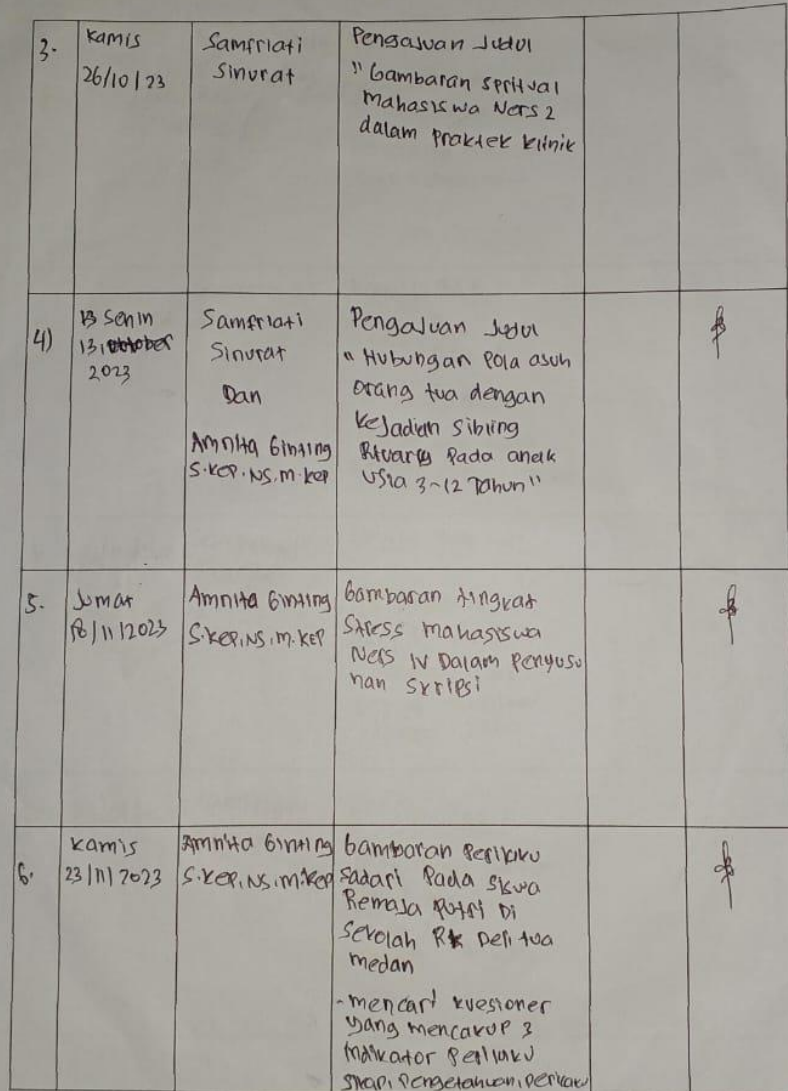 3.
Kamis
26/10/23
Samfriati
Sinurat
Pengajuan Judul
" Gambaran spritual
Mahasiswa Ners 2
dalam Praktek Klinik
4)
Senin
13, oktober
2023
Samfriati
Sinurat
Dan
Amnita Ginting
S.KEP.NS.M.Kep
Pengajuan Judul
" Hubungan Pola asuh
orang tua dengan
kejadian Sibling
Pada anak
Usia 3-12 Tahun"
5.
Jumat
/11/2023
Amnita Ginting
S.KEP.NS.M.KEP
Gambaran tingkat
Stress mahasiswa
Ners IV Dalam Penyusu
nan Skripsi
6.
Kamis
23/11/2023
Amnita Ginting
S.KEP.NS.M.Kep
Gambaran Perilaku
Sadari Pada
Remaja Putri Di
Sekolah RK Deli tua
medan
- mencari kuesioner
yang mencakup 3
Indikator Perilaku
Sikap, Pengetahuan, Perilaku